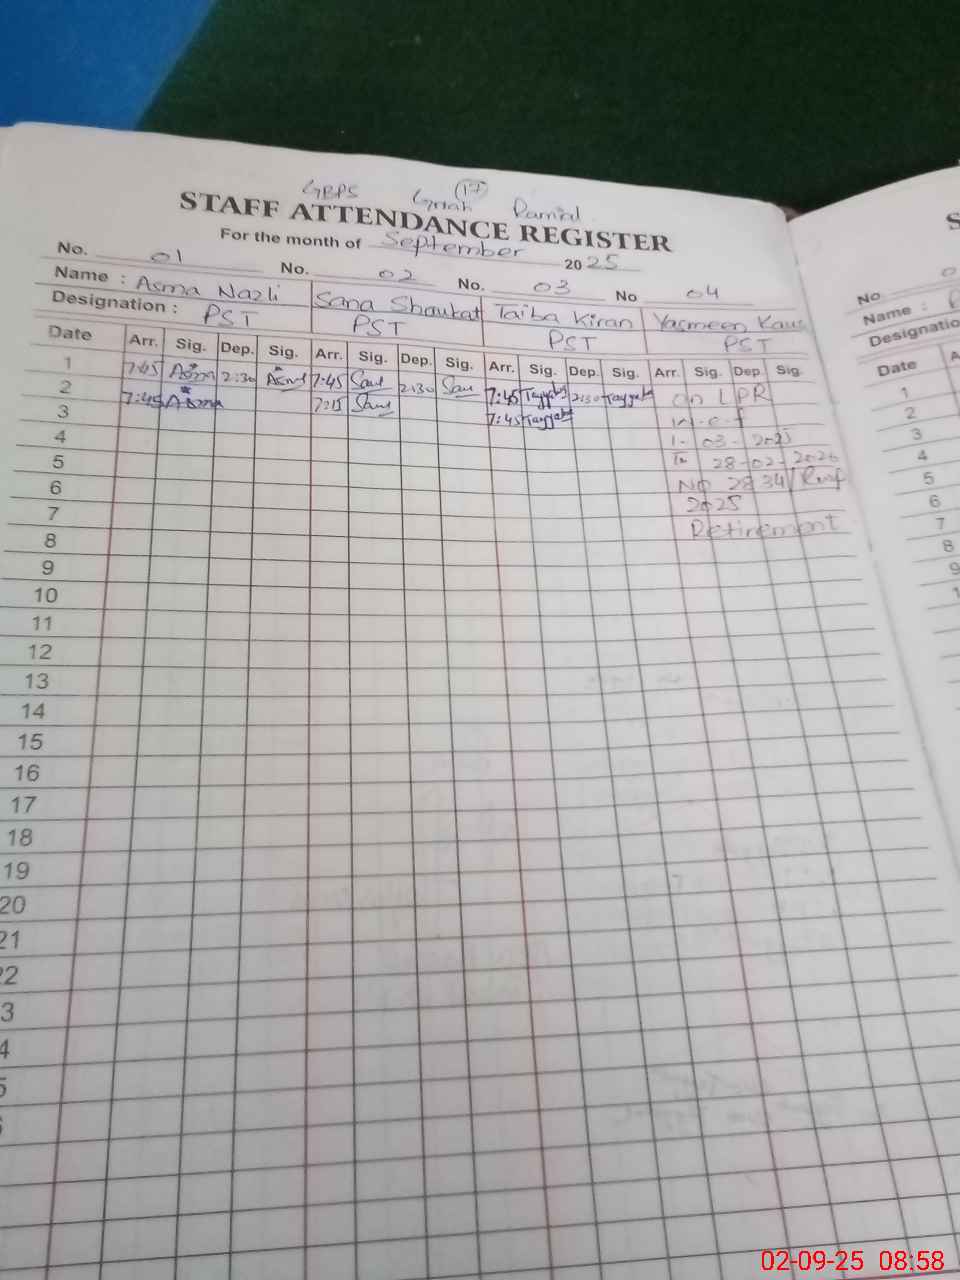 GBPS (17)
STAFF ATTENDANCE REGISTER
For the month of September 2025
No. 01 No. 02 No. 03 No 04
Name : Asma Nazli Sana Shaukat Taiba Kiran Yasmeen Kaus
Designation : PST PST PST PST
Date Arr. Sig. Dep. Sig. Arr. Sig. Dep. Sig. Arr. Sig. Dep. Sig. Arr. Sig. Dep. Sig.
1 7:45 Asma 2:30 Asma 7:45 Sana 2:30 Sana 7:45 Tayyaba 2:30 Tayyaba On LPR
2 7:45 Asma 7:15 Sana 7:45 Tayyaba w.e.f
3 1-03-2025
4 To 28-02-2026
5 No 2834/Rwp
6 2025
7 Retirement
8
9
10
11
12
13
14
15
16
17
18
19
20
21
22
3
4
5
No
Name :
Designatio
Date A
1
2
3
4
5
6
7
8
9
02-09-25 08:58